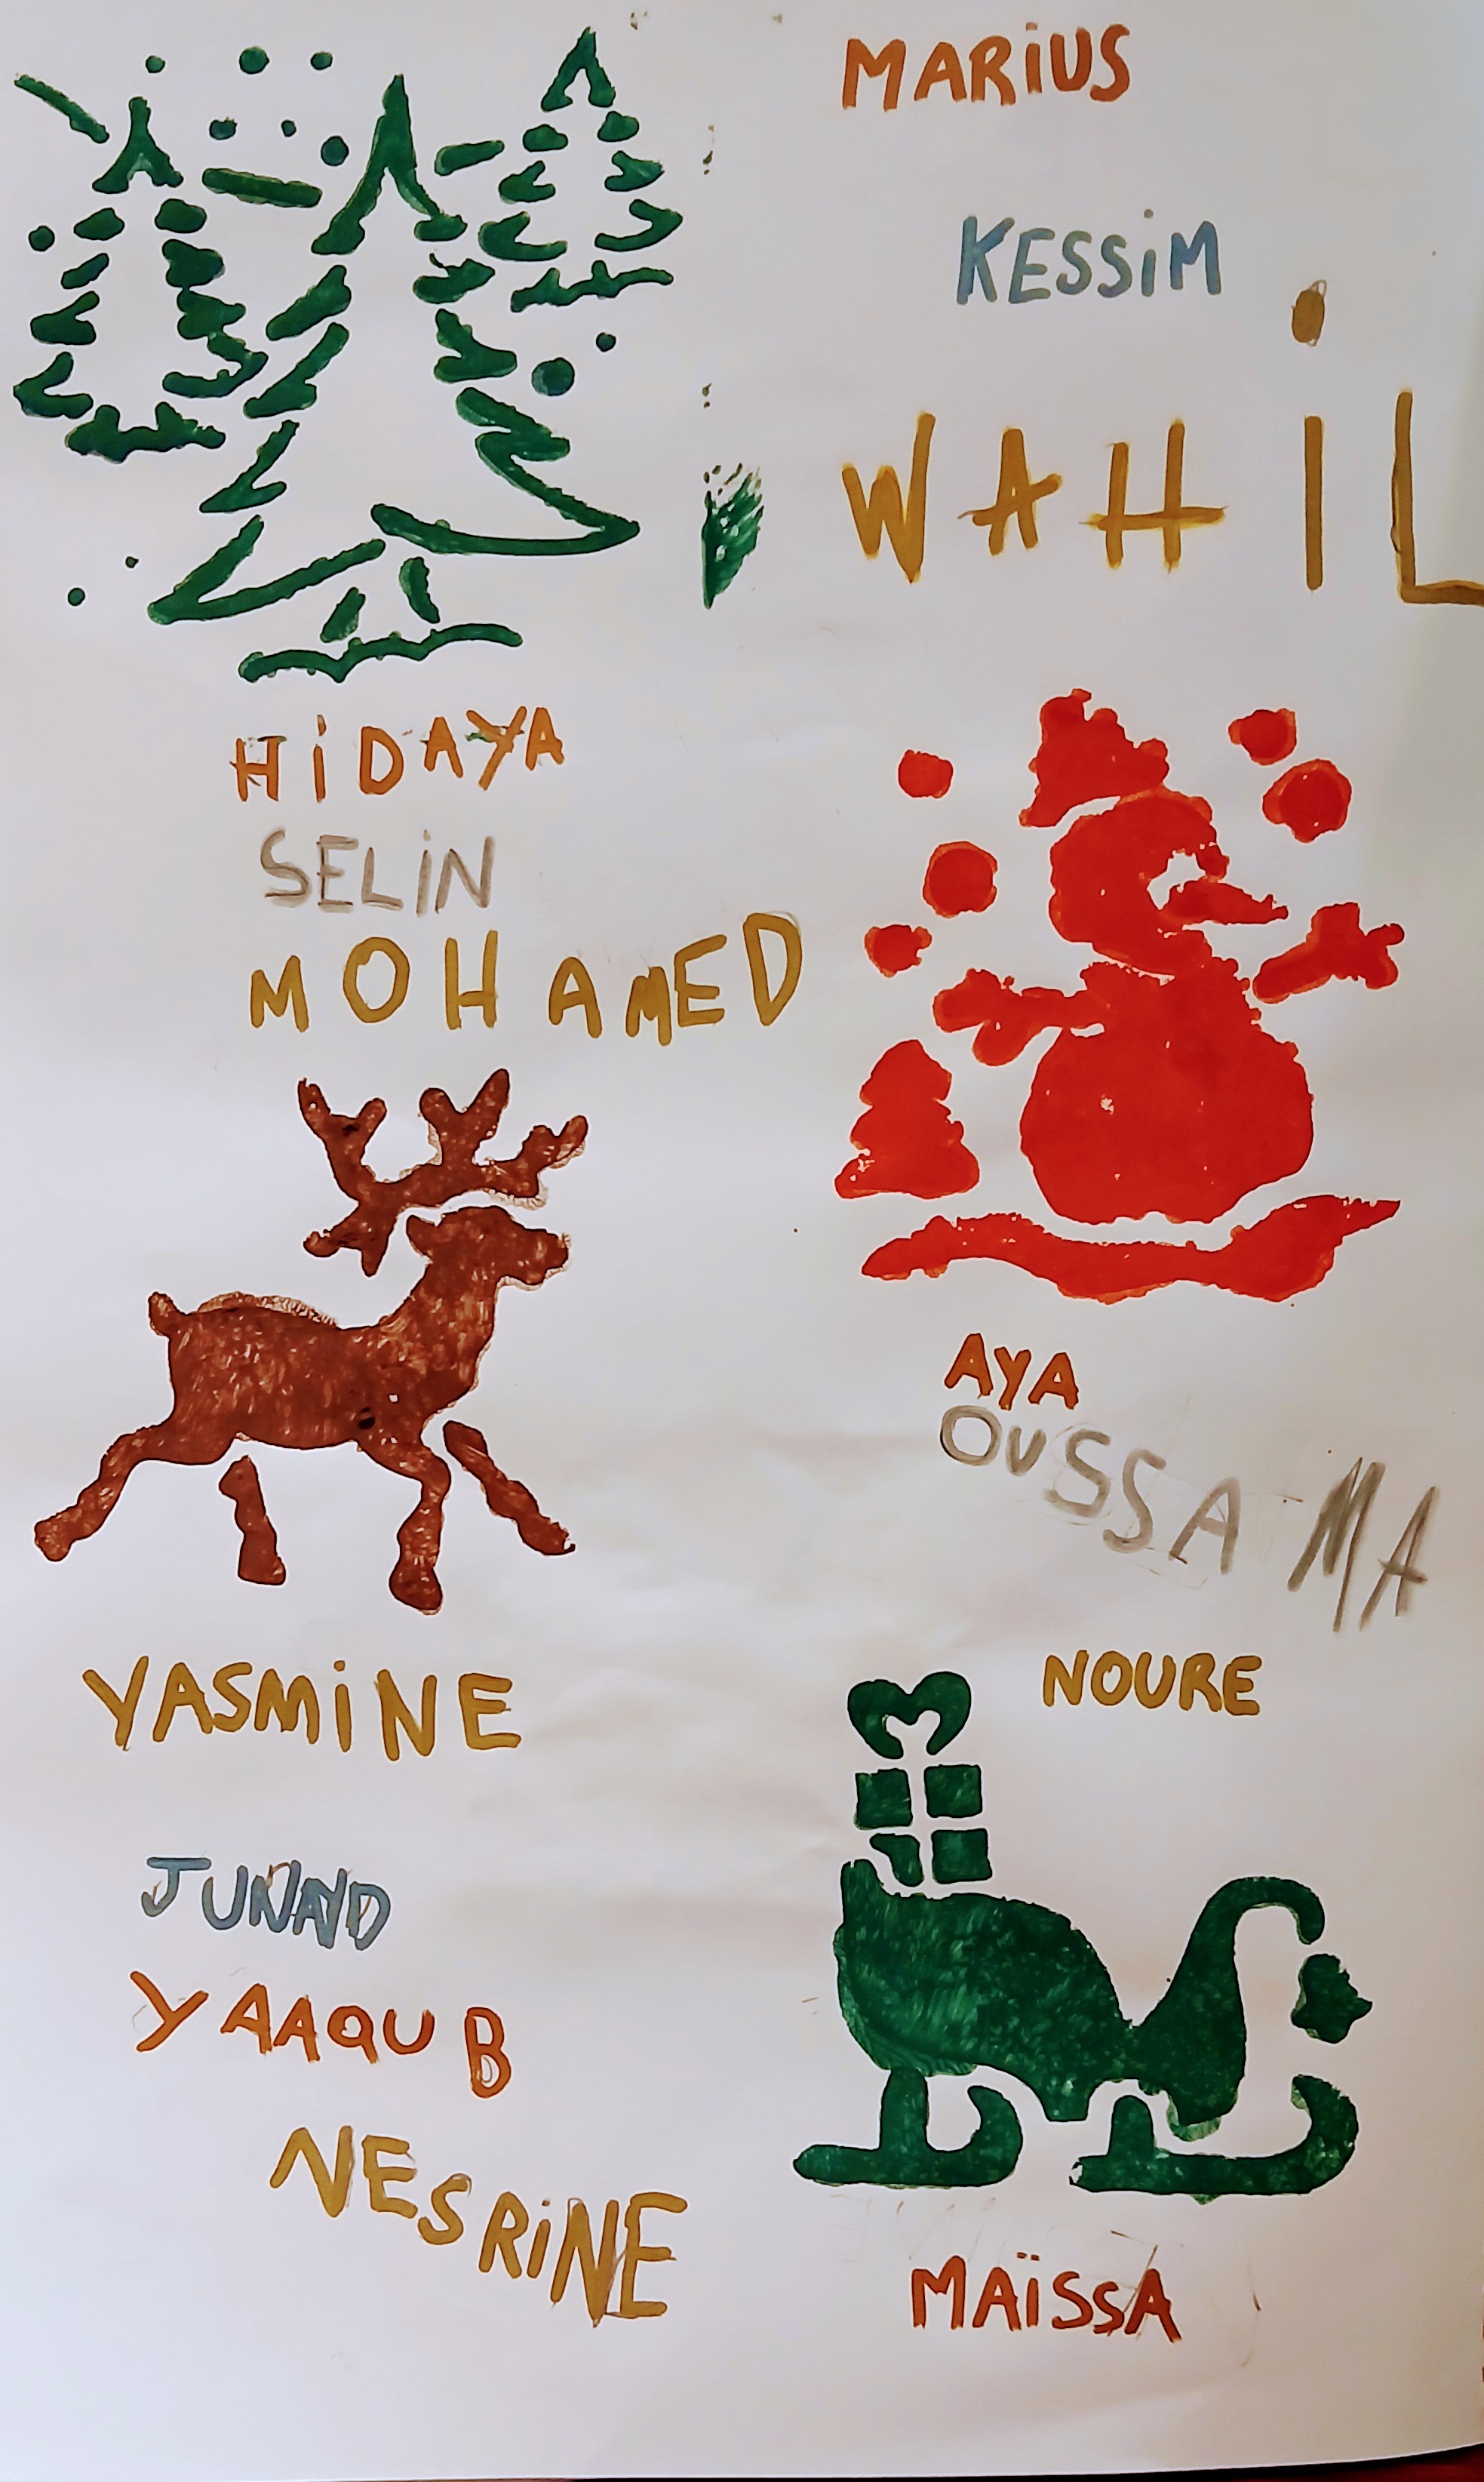 MARiUS
KESSiM
WAHiL
HiDAYA
SELiN
MOHAMED
AYA
OUSSAMA
YASMiNE
NOURE
JUNAYD
YAAQUB
NESRiNE
MAÏSSA